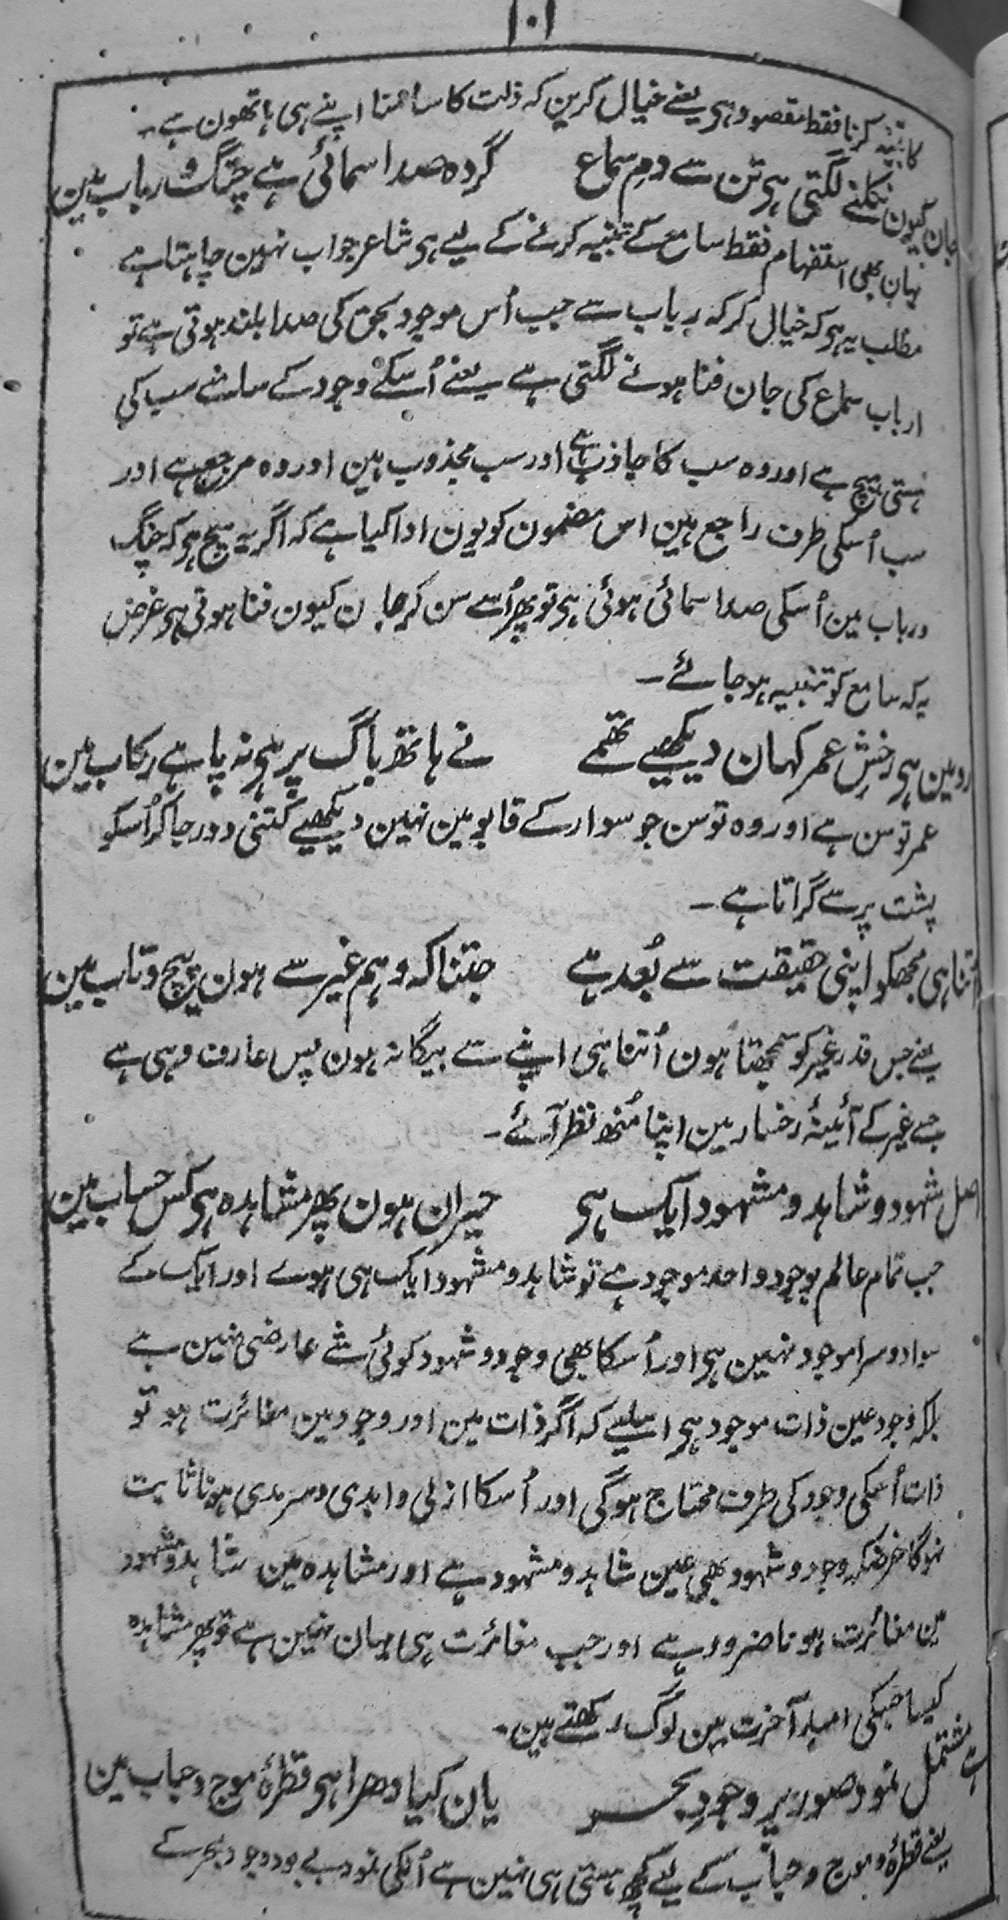 ۱۰۱
کا تنبیہ کرنا فقط مقصود ہی یعنے خیال کرین کہ ذلت کا سامنا اپنے ہی ہاتھون ہے۔
جان کیون نکلنے لگتی ہی تن سے دمِ سماع گر وہ صدا سمائی ہے چنگ و رباب مین
یہان بھی استفہام فقط سامع کے تنبیہ کرنے کے لیے ہی شاعر جواب نہین چاہتا ہے
مطلب یہ ہو کہ خیال کر کہ رباب سے جب اُس موجود بحق کی صدا بلند ہوتی ہے تو
ارباب سماع کی جان فنا ہونے لگتی ہے یعنے اُسکے وجود کے سامنے سب کی
ہستی ہیچ ہے اور وہ سب کا جاذب ہے اور سب مجذوب ہین اور وہ مرجع ہے اور
سب اُسکی طرف راجع ہین اس مضمون کو یون ادا کیا ہے کہ اگر یہ سچ ہو کہ چنگ
و رباب مین اُسکی صدا سمائی ہوئی ہی تو پھر اُسے سن کر جان کیون فنا ہوتی ہی غرض
یہ کہ سامع کو تنبیہ ہو جائے۔
رو مین ہی رخشِ عمر کہان دیکھیے تھمے نے ہاتھ باگ پر ہی نہ پا ہے رکاب مین
عمر توسن ہے اور وہ توسن جو سوار کے قابو مین نہین دیکھیے کتنی دور جا کر اُسکو
پشت پر سے گراتا ہے۔
اتنا ہی مجھکو اپنی حقیقت سے بُعد ہے جتنا کہ وہم غیر سے ہون پیچ و تاب مین
یعنے جس قدر غیر کو سمجھتا ہون اُتنا ہی اپنے سے بیگانہ ہون پس عارف وہی ہے
جسے غیر کے آئینۂ رخسار مین اپنا مُنھ نظر آئے۔
اصل شہود و شاہد و مشہود ایک ہی حیران ہون پھر مشاہدہ ہی کس حساب مین
جب تمام عالم بوجود واحد موجود ہے تو شاہد و مشہود ایک ہی ہوے اور ایک کے
سوا دوسرا موجود نہین ہی اور اُسکا بھی وجود و شہود کوئی شے عارضی نہین ہے
بلکہ وجود عین ذات موجود ہی اسلیے کہ اگر ذات مین اور وجود مین مغائرت ہو تو
ذات اُسکی وجود کی طرف محتاج ہوگی اور اُسکا ازلی و ابدی و سرمدی ہونا ثابت
نہوگا غرضکہ وجود و شہود بھی عین شاہد و مشہود ہے اور مشاہدہ مین شاہد و مشہود
مین مغائرت ہونا ضرور ہے اور جب مغائرت ہی یہان نہین ہے تو پھر مشاہدہ
کیسا جسکی امید آخرت مین لوگ رکھتے ہین۔
ہے مشتمل نمود صور پر وجودِ بحر یان کیا دھرا ہی قطرۂ موج و حباب مین
یعنے قطرہ و موج و حباب کے لیے کچھ ہستی ہی نہین ہے اُنکی نمود بے بود وجود بحر کے